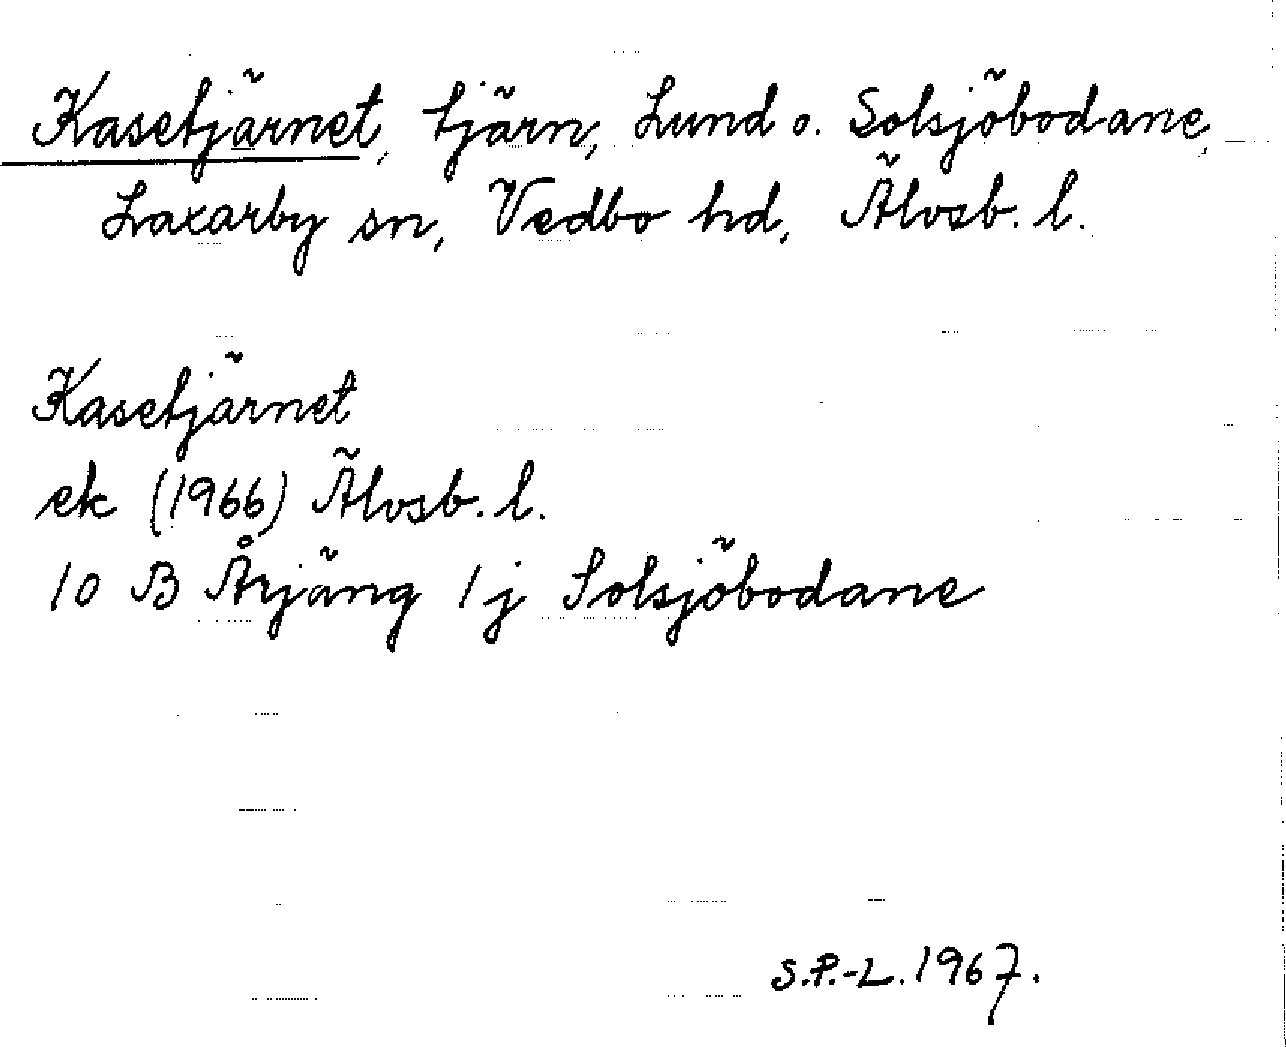 Kasetjärnet, tjärn, Lund o. Solsjöbodane,
Laxarby sn, Vedbo hd, Älvsb. l.
Kasetjärnet
ek (1966) Älvsb. l.
10 B Årjäng 1j Solsjöbodane
S.P.-L. 1967.